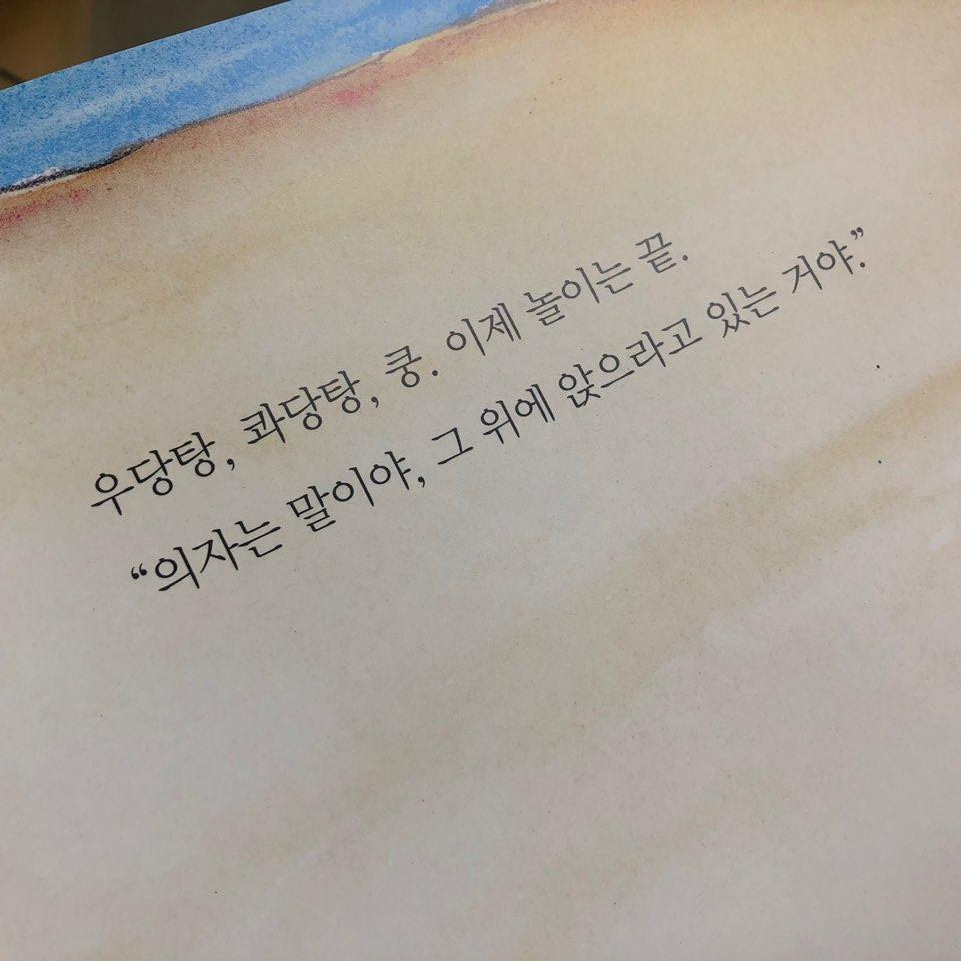 우당탕, 콰당탕, 쿵. 이제 놀이는 끝.
“의자는 말이야, 그 위에 앉으라고 있는 거야.”